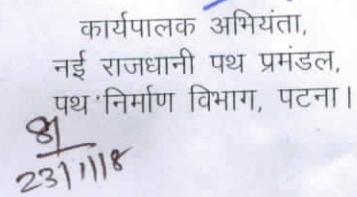 कार्यपालक अभियंता,
नई राजधानी पथ प्रमंडल,
पथ निर्माण विभाग, पटना।
23/1/18